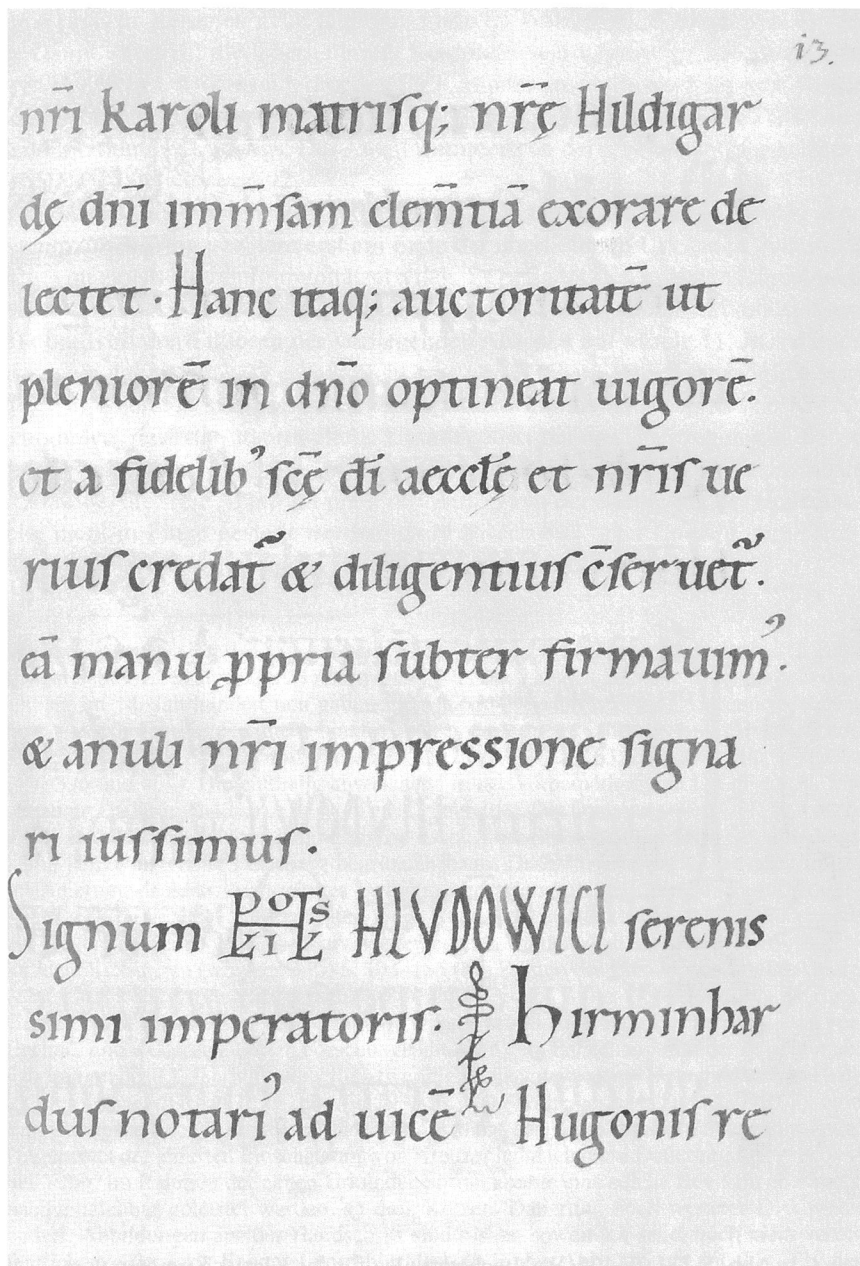 i3.
nr̄i karoli matrisq; nr̄ę Hildigar
dę dn̄i imm̄sam clem̄tiā exorare de
lectet · Hanc itaq; auctoritatē ut
pleniorē in dn̄o optineat uigorē.
et a fidelib' sc̄ę dī aeccłę et nr̄is ue
rius credat᷑ & diligentius c̄seruet᷑.
eā manu ꝓpria subter firmauim'.
& anuli nr̄i impressione signa
ri iussimus.
Signum HLVDOWICI serenis
simi imperatoris. hirminhar
dus notari' ad uicē Hugonis re